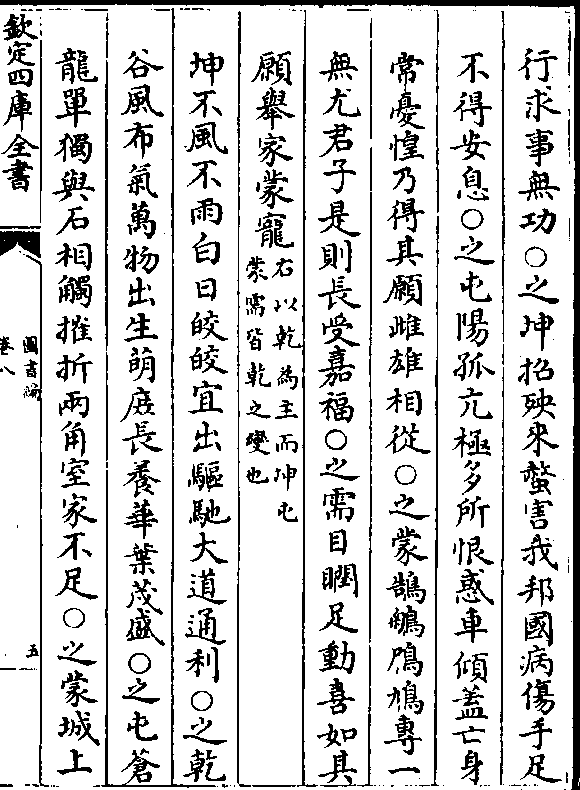 行求事無功○之坤招殃來螫害我邦國病傷手足
不得安息○之屯陽孤亢極多所恨惑車傾蓋亡身
常憂惶乃得其願雌雄相從○之蒙鵠鵃鳲鳩專一
無尤君子是則長受嘉福○之需目瞤足動喜如其
願舉家蒙寵右以乾為主而坤屯
蒙需皆乾之變也
坤不風不雨白日皎皎宜出驅馳大道通利○之乾
谷風布氣萬物出生萌庶長養華葉茂盛○之屯蒼
龍單獨與石相觸摧折兩角室家不足○之蒙城上
欽定四庫全書
圖書編
卷八
五